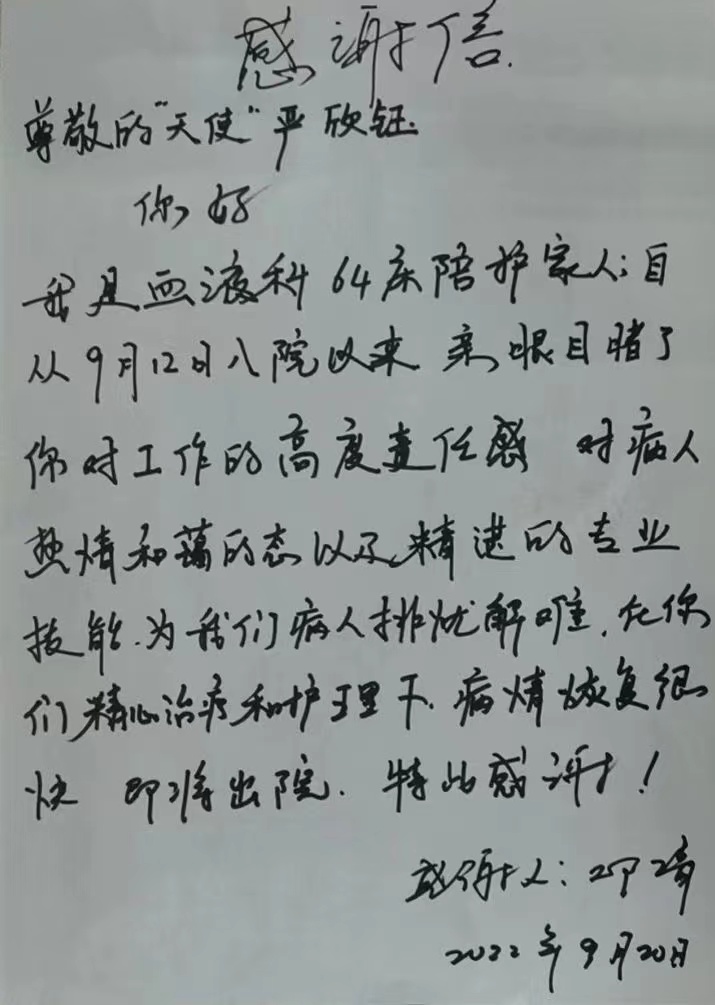 感谢信.
尊敬的“天使”严欣钰.
你好
我是血液科64床陪护家人;自
从9月12日入院以来 亲眼目睹了
你对工作的高度责任感 对病人
热情和蔼的态以及精进的专业
技能.为我们病人排忧解难.在你
们精心治疗和护理下.病情恢复很
快 即将出院.特此感谢!
感谢人:邓
2022年9月20日